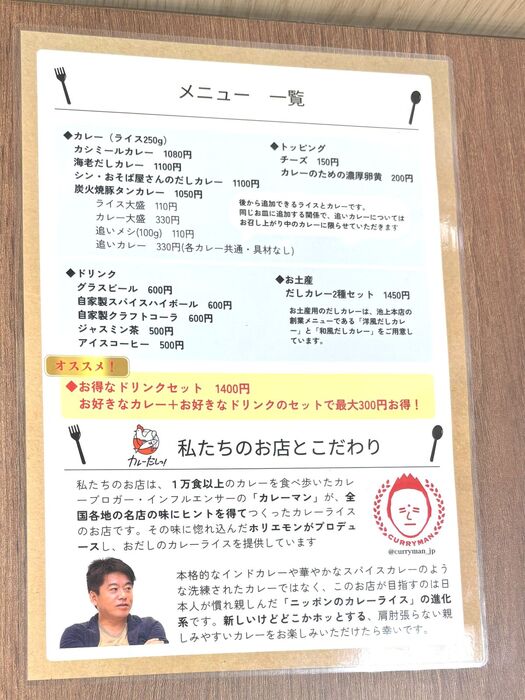 メニュー 一覧
◆カレー（ライス250g）
カシミールカレー 1080円
海老だしカレー 1100円
シン・おそば屋さんのだしカレー 1100円
炭火焼豚タンカレー 1050円
ライス大盛 110円
カレー大盛 330円
追いメシ(100g) 110円
追いカレー 330円(各カレー共通・具材なし)
◆トッピング
チーズ 150円
カレーのための濃厚卵黄 200円
後から追加できるライスとカレーです。
同じお皿に追加する関係で、追いカレーについては
お召し上がり中のカレーに限らせていただきます
◆ドリンク
グラスビール 600円
自家製スパイスハイボール 600円
自家製クラフトコーラ 600円
ジャスミン茶 500円
アイスコーヒー 500円
◆お土産
だしカレー2種セット 1450円
お土産用のだしカレーは、池上本店の
創業メニューである「洋風だしカレ
ー」と「和風だしカレー」をご用意し
ています。
オススメ！
◆お得なドリンクセット 1400円
お好きなカレー＋お好きなドリンクのセットで最大300円お得！
カレーだしつ！
私たちのお店とこだわり
私たちのお店は、１万食以上のカレーを食べ歩いたカレ
ーブロガー・インフルエンサーの「カレーマン」が、全
国各地の名店の味にヒントを得てつくったカレーライス
のお店です。その味に惚れ込んだホリエモンがプロデュ
ースし、おだしのカレーライスを提供しています
CURRYMAN
@curryman_jp
本格的なインドカレーや華やかなスパイスカレーのよう
な洗練されたカレーではなく、このお店が目指すのは日
本人が慣れ親しんだ「ニッポンのカレーライス」の進化
系です。新しいけどどこかホッとする、肩肘張らない親
しみやすいカレーをお楽しみいただけたら幸いです。